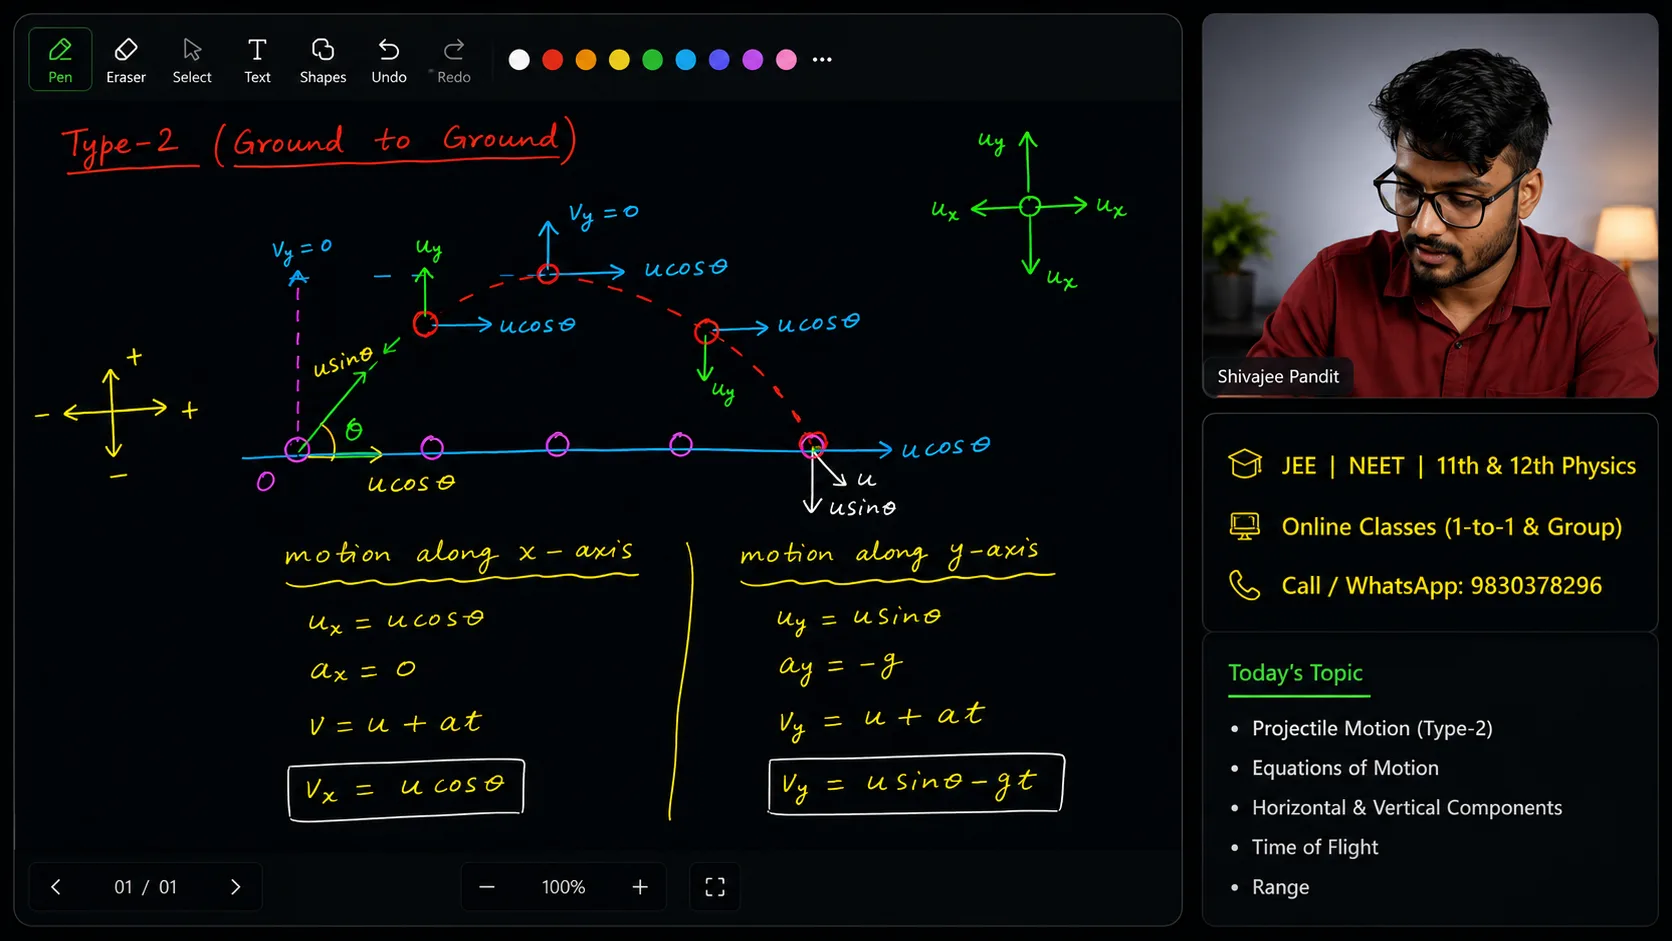 Pen Eraser Select Text Shapes Undo Redo
Type-2 (Ground to Ground)
uy
ux ux
ux
Vy = 0
Vy = 0
uy
ucosθ
ucosθ
ucosθ
usinθ
uy
+
- +
-
θ
O
ucosθ
ucosθ
u
usinθ
motion along x-axis
ux = ucosθ
ax = 0
v = u + at
Vx = ucosθ
motion along y-axis
uy = usinθ
ay = -g
Vy = u + at
Vy = usinθ-gt
01 / 01
100%
Shivajee Pandit
JEE | NEET | 11th & 12th Physics
Online Classes (1-to-1 & Group)
Call / WhatsApp: 9830378296
Today's Topic
• Projectile Motion (Type-2)
• Equations of Motion
• Horizontal & Vertical Components
• Time of Flight
• Range